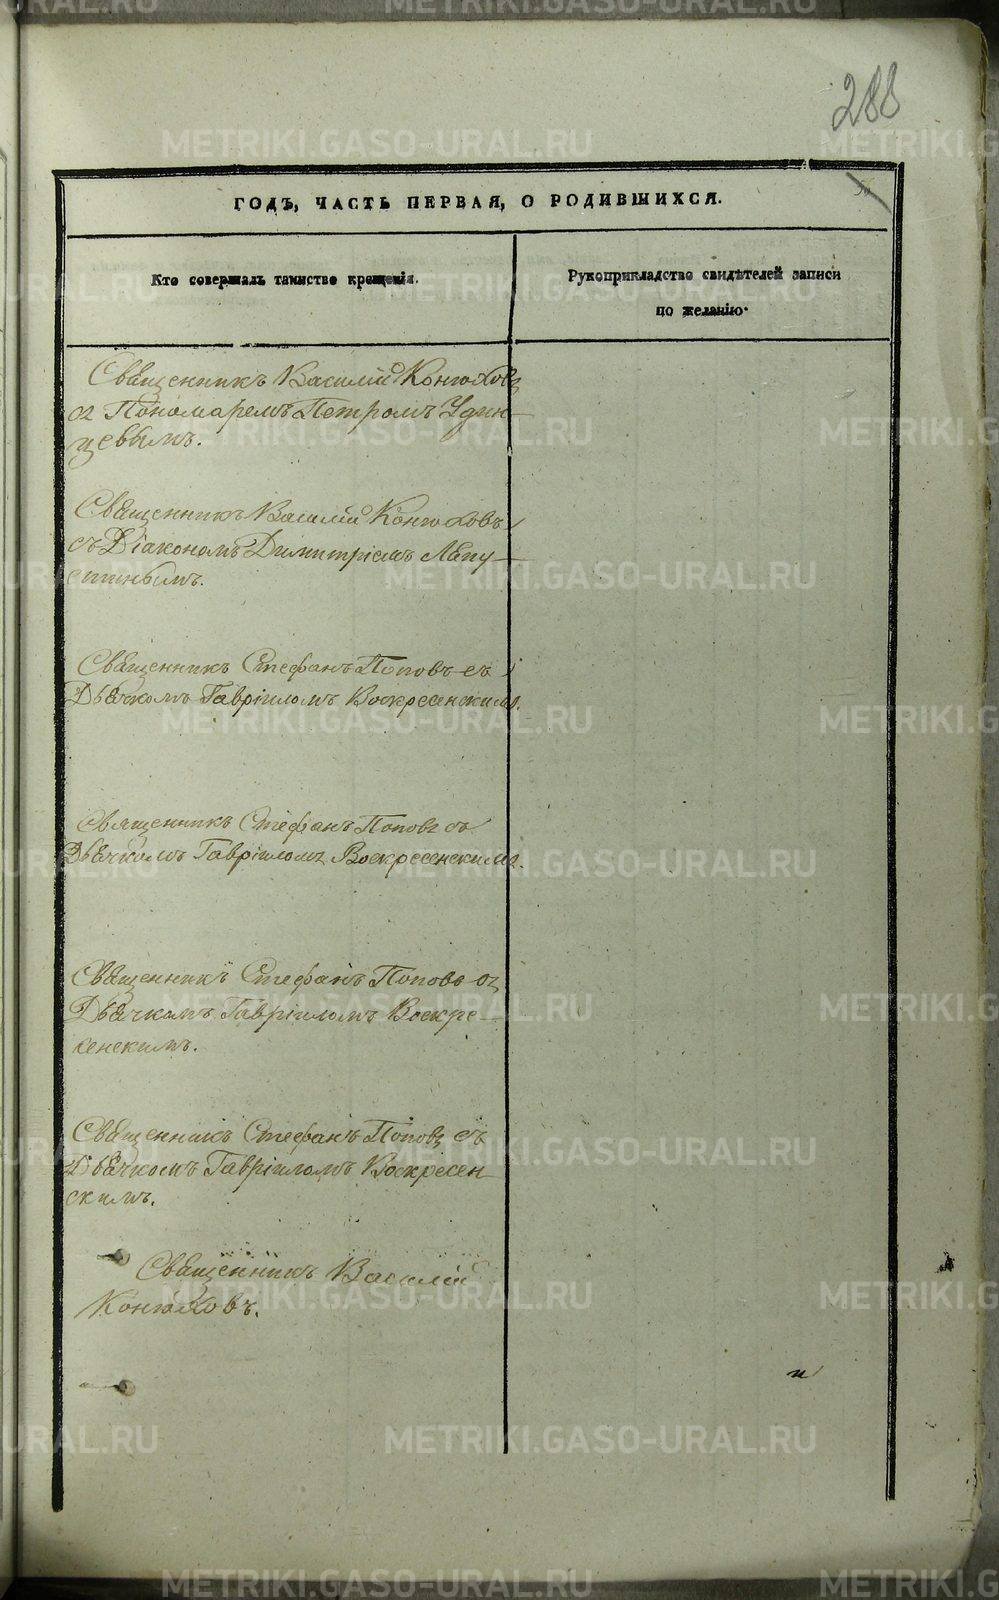 288
ГОДЪ, ЧАСТЬ ПЕРВАЯ, О РОДИВШИХСЯ.
Кто совершалъ таинство крещенія.
Рукоприкладство свидѣтелей записи
по желанію.
Священникъ Василій Конюховъ
съ Пономаремъ Петромъ Удин-
цевымъ.
Священникъ Василій Конюховъ
съ Діакономъ Димитріемъ Лапу-
стинымъ.
Священникъ Стефанъ Поповъ съ
Дьячкомъ Гавріиломъ Воскресенскимъ.
Священникъ Стефанъ Поповъ съ
Дьячкомъ Гавріиломъ Воскресенскимъ.
Священникъ Стефанъ Поповъ съ
Дьячкомъ Гавріиломъ Воскре-
сенскимъ.
Священникъ Стефанъ Поповъ съ
Дьячкомъ Гавріиломъ Воскресен
скимъ.
Священникъ Василій
Конюховъ.
METRIKI.GASO-URAL.RU